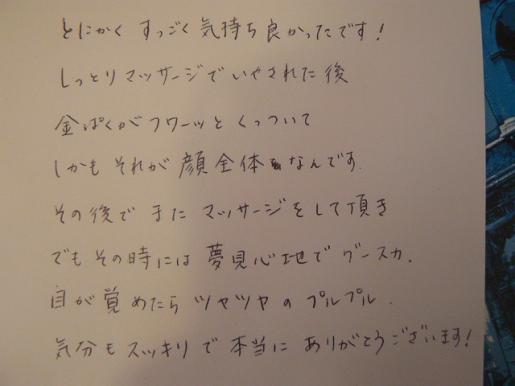 とにかく すっごく気持ち良かったです!
しっとりマッサージでいやされた後
金ぱくがフワーッと くっついて
しかも それが 顔全体なんです.
その後で また マッサージをして頂き
でもその時には 夢見心地で グースカ.
目が覚めたら ツヤツヤの プルプル.
気分もスッキリで 本当に ありがとうございます!